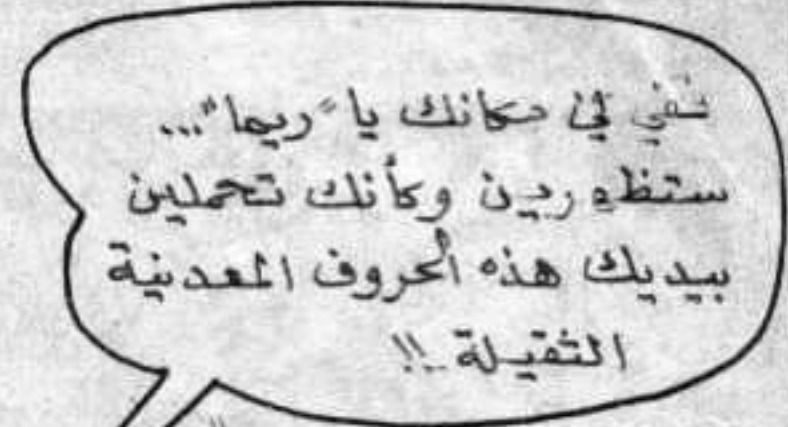 قفي في مكانك يا "ريما"...
ستظهرين وكأنك تحملين
بيديك هذه الحروف المعدنية
الثقيلة..!!